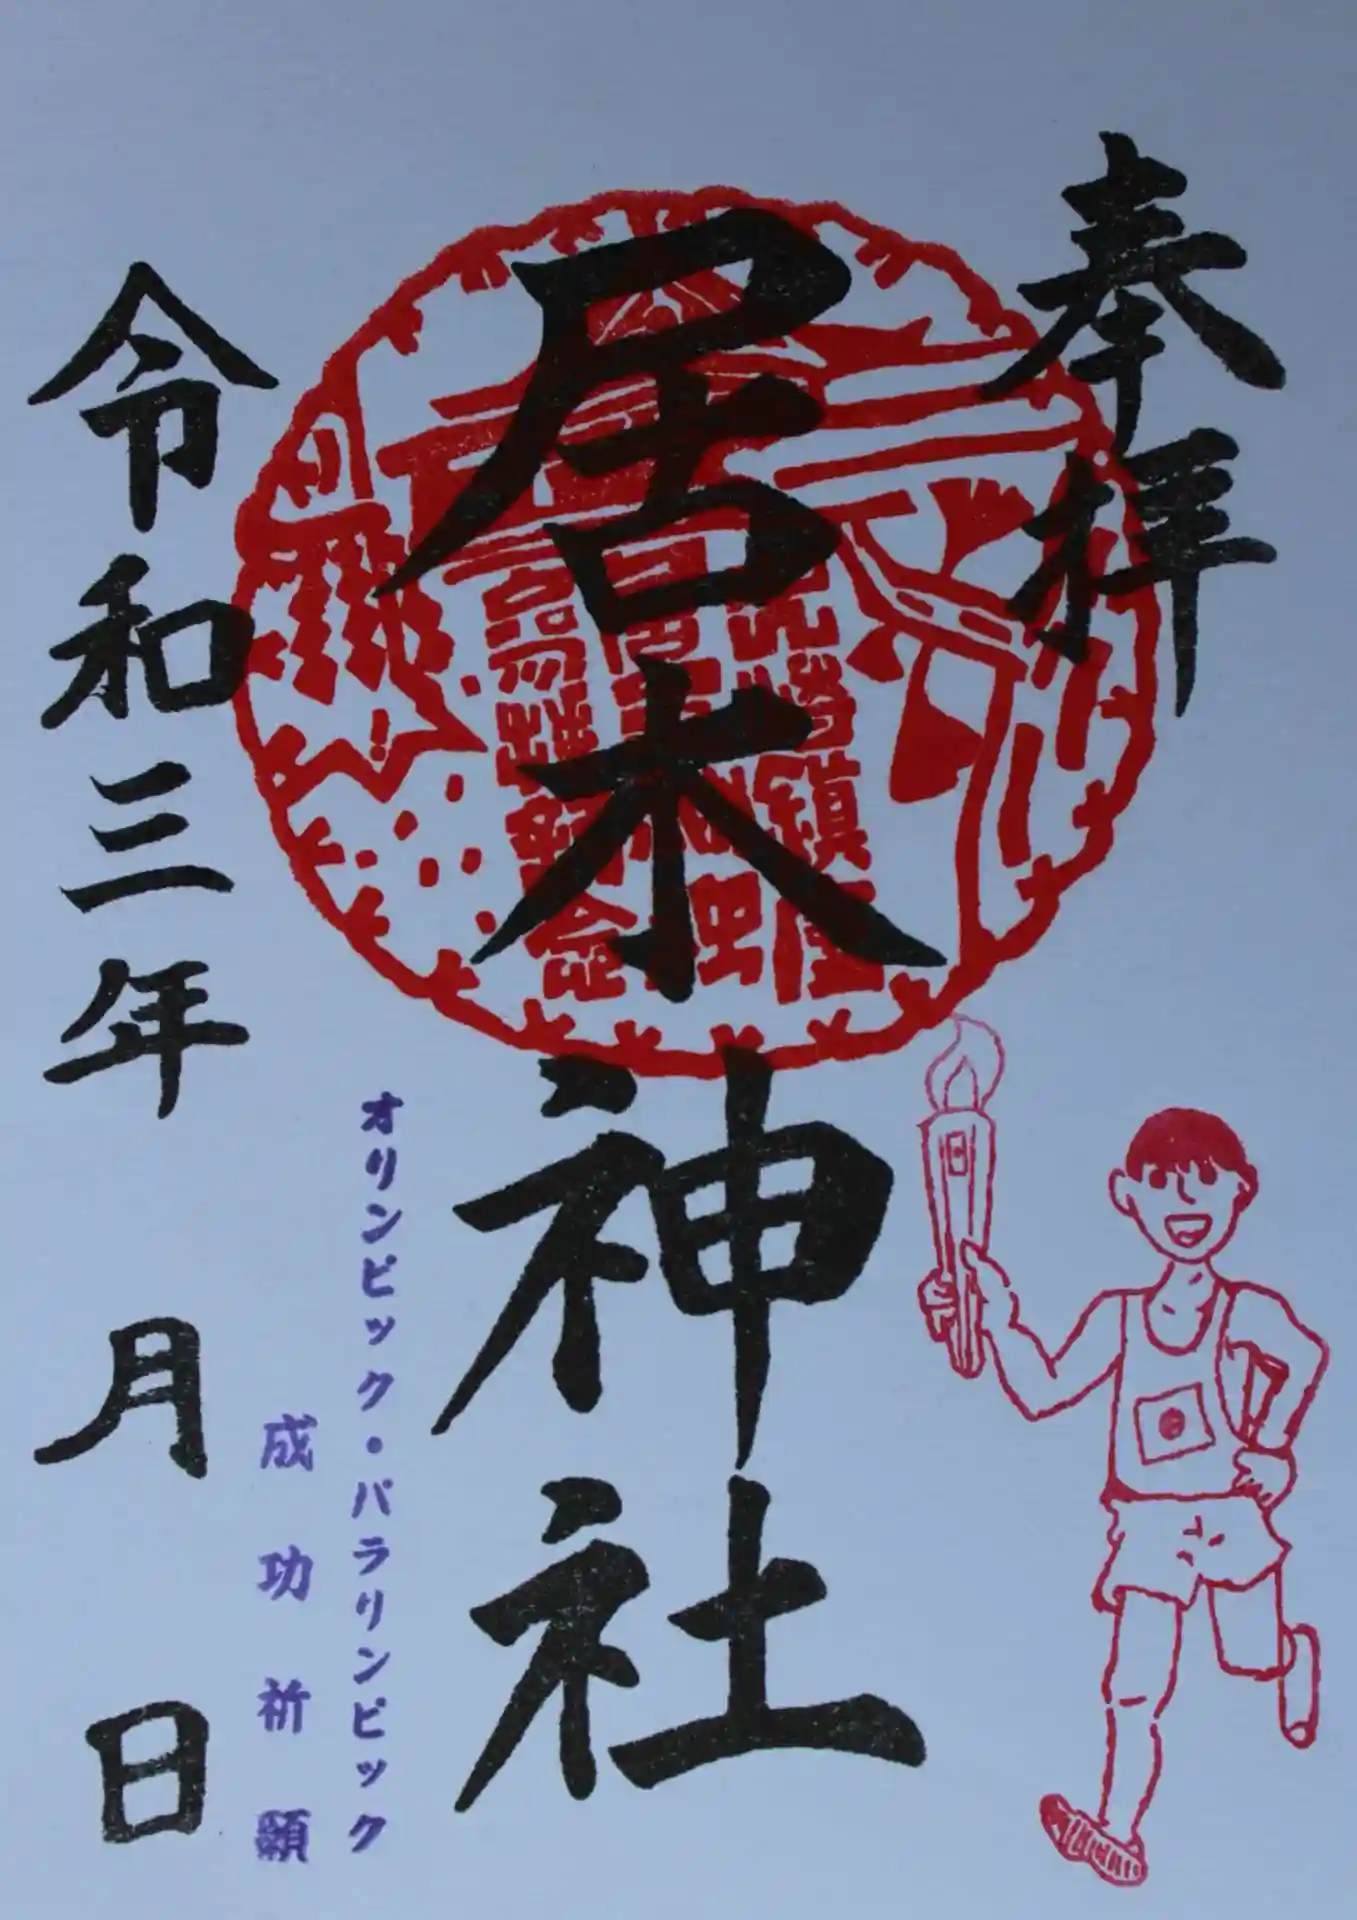 奉拝
居木神社
オリンピック・パラリンピック
成功祈願
令和三年 月 日